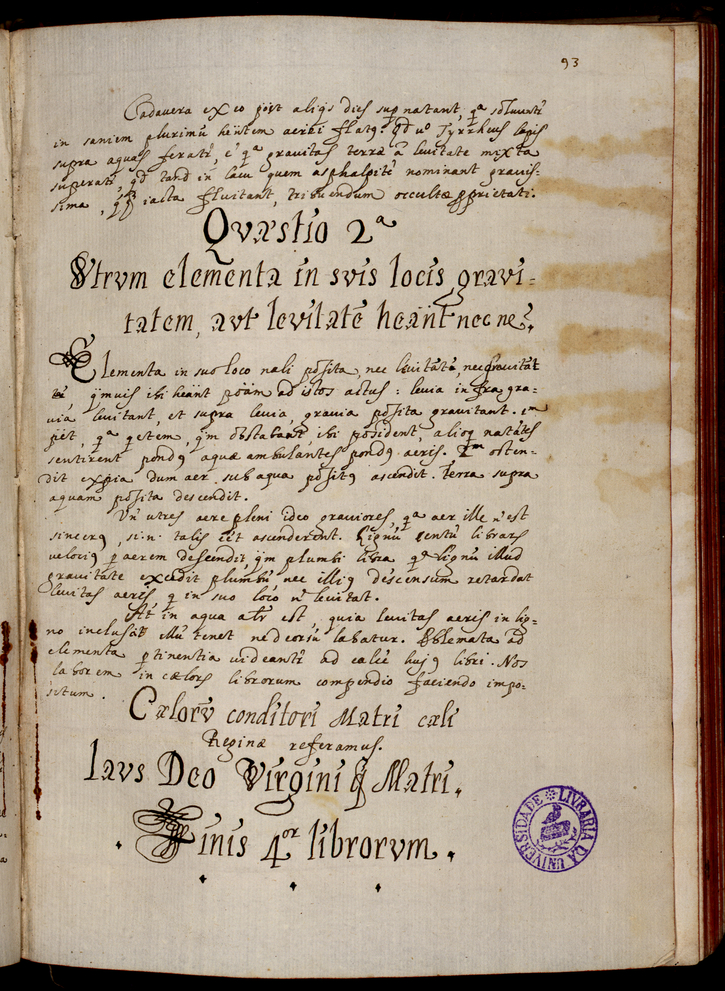 93
Cadavera ex eo post aliqs dies supnatant, qᵃ solvunt'
in saniem plurimū hēntem aerei flatq. qd uº Tyrrheus legis
supra aquas ferat', ē qᵃ gravitas terræ a levitate mixta
superat', qd tand in lacu quem asphalpite nominant graviss-
sima, iacta fluitant, tribuendum occultæ pprietati.
Qvæstio 2ᵃ
Vtrvm elementa in svis locis gravi-
tatem, avt levitatē heant nec ne?
Elementa in suo loco nali posita, nec levitatē, nec gravitat
ē, qmvis ibi heant poäm ad istos actus: levia infra gra-
via levitant, et supra levia, gravia posita gravitant.
qᵃ qetem, qm obstabant, ibi posident, alioq natātes
sentirent pondq aquæ ambulantes pondq aeris. 2ᵐ osten-
dit expia dum aer sub aqua positq ascendit. terra supra
aquam posita descendit.
Vn utres aere pleni ideo graviores, qᵃ aer ille n'est
sincerq, sin talis ēēt ascenderent. Lignū centū librarᵉ
velociq p aerem descendit, qm plumbi libra qᵃ lignū illud
gravitate excedit plumbū nec illiq descensum retardat
levitas aeris q in suo loco n' levitat.
At in aqua alr est, quia levitas aeris in lig-
no inclusi illū tenet ne deorsū labatur. Pblemata ad
elementa ptinentia videant' ad calcē hujq libri. Nos
laborem in cælorᵉ librorum compendio faciendo impo-
situm.
Cælorū conditori Matri cæli
Reginæ referamus.
Lavs Deo Virgini q Matri.
Finis 4ᵒʳ librorvm.
LIVRARIA DA UNIVERSIDADE